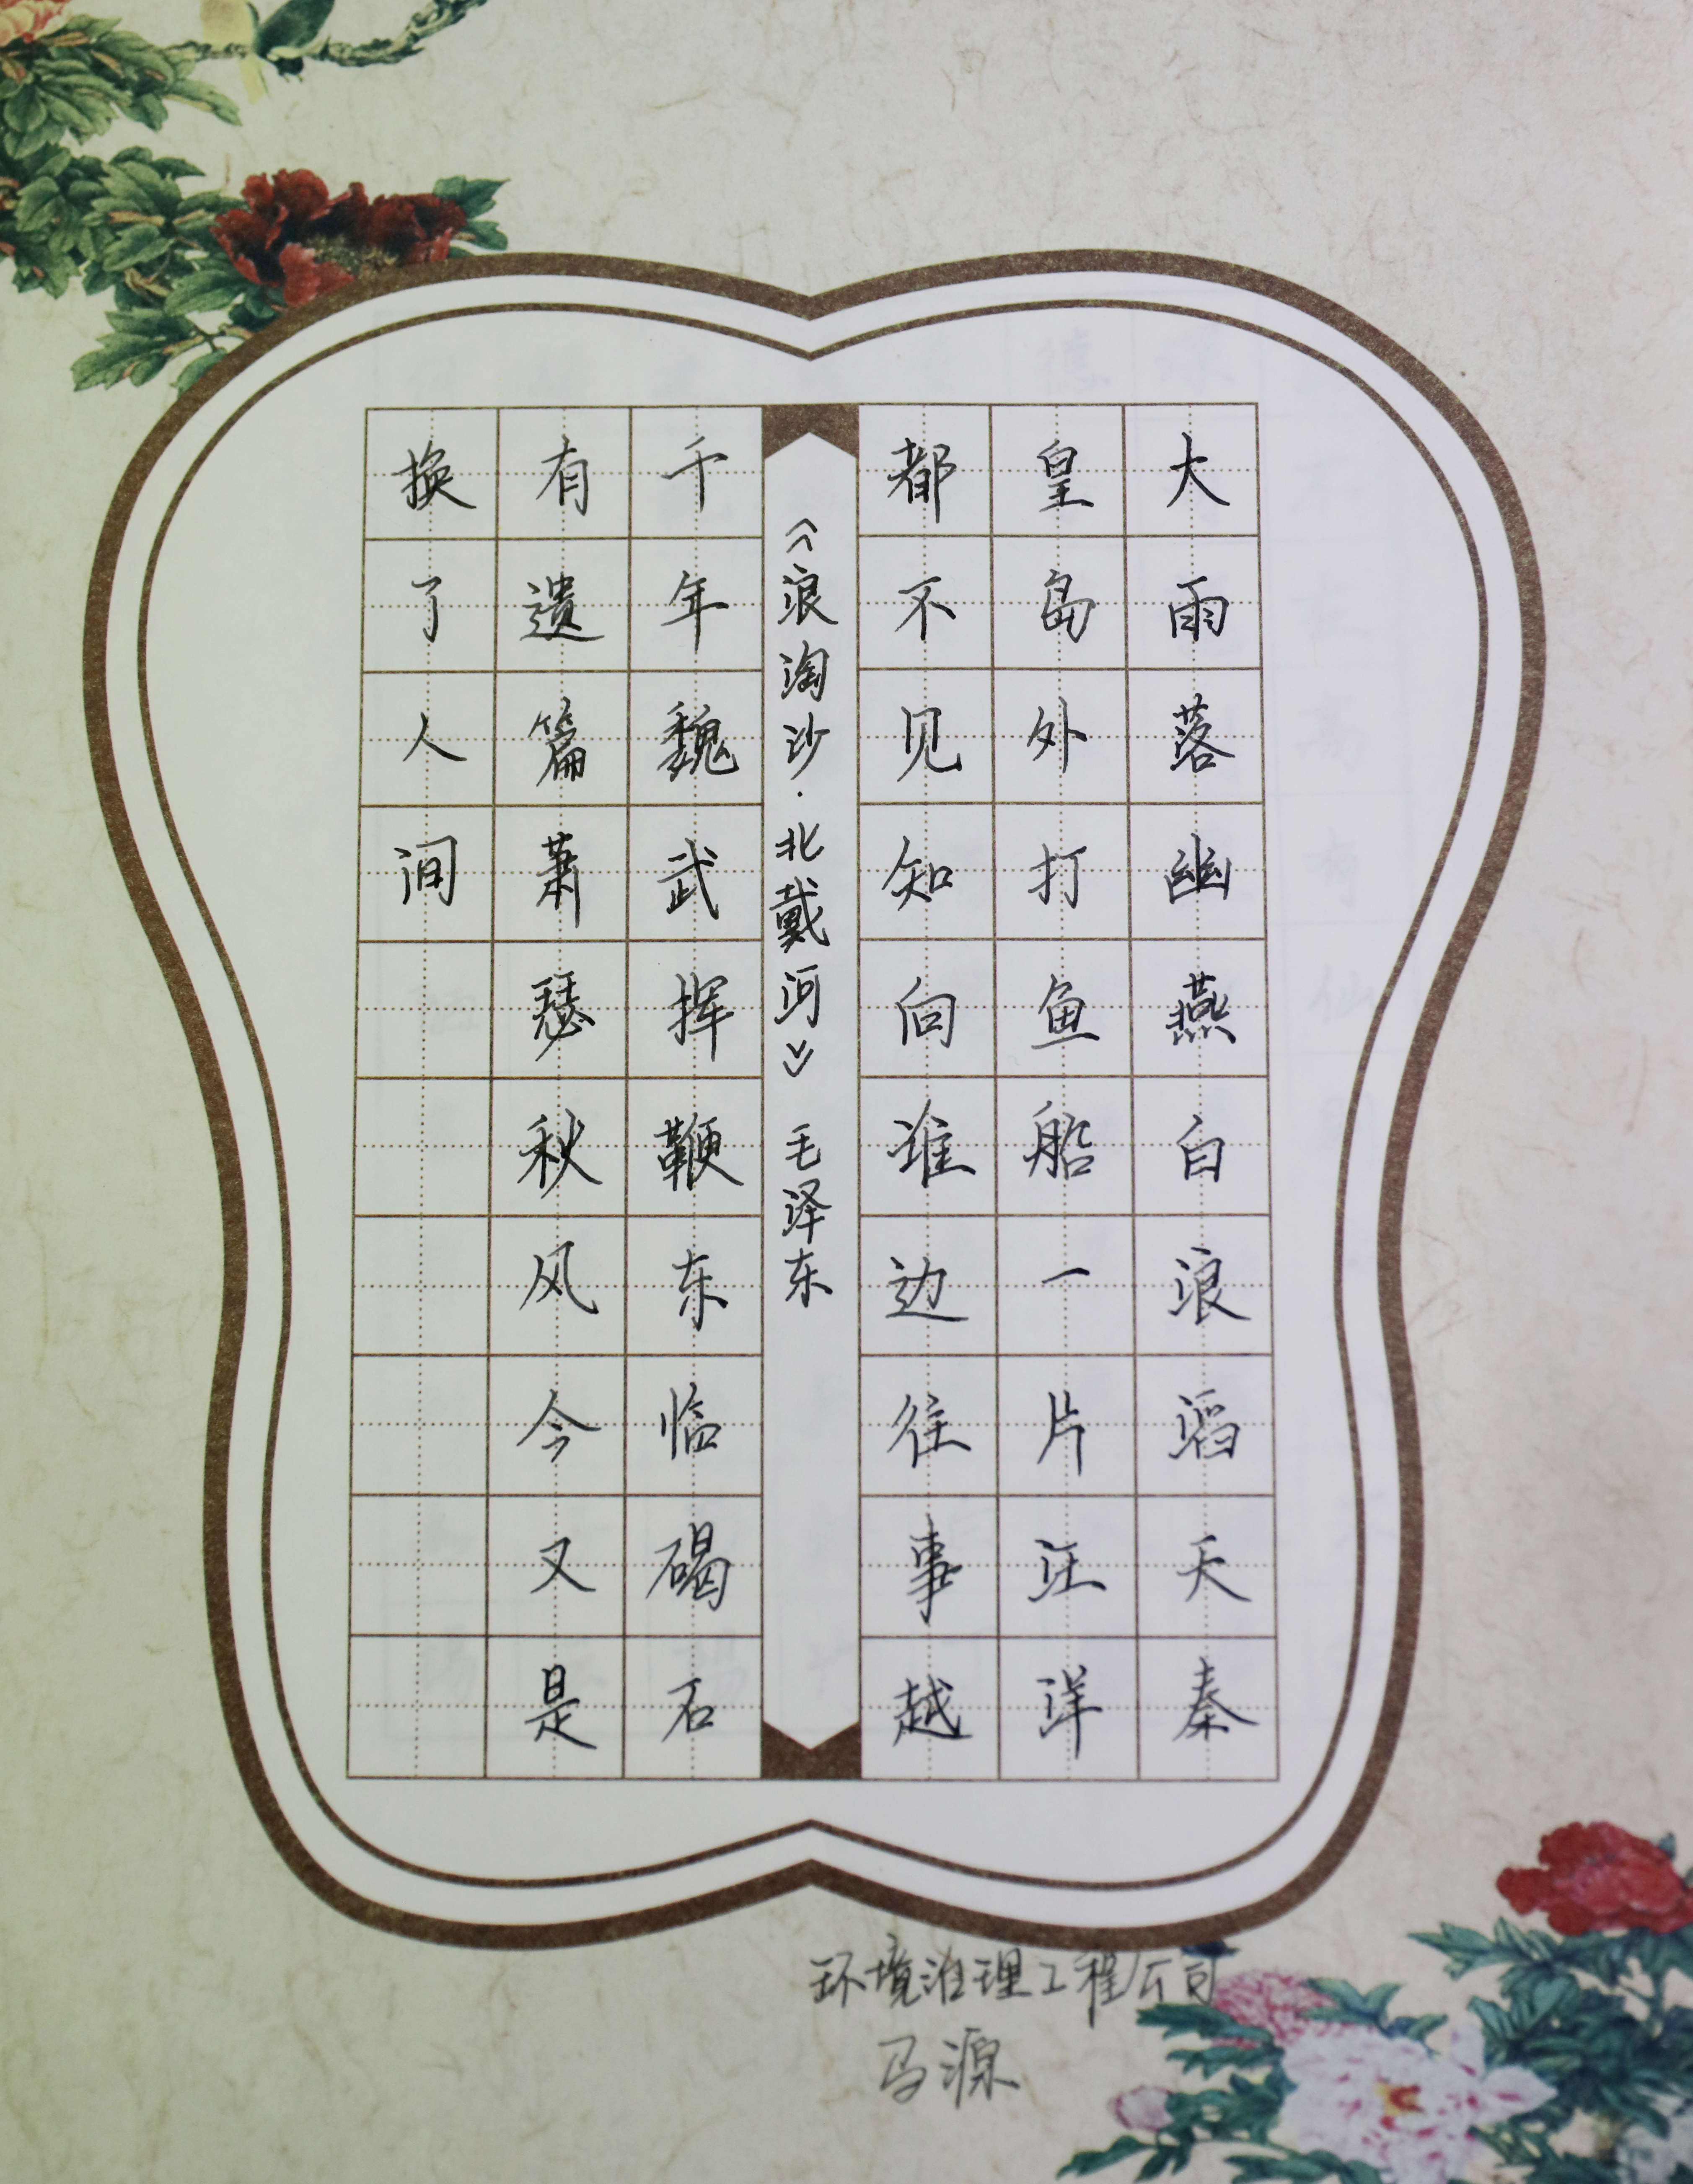 大雨落幽燕白浪滔天秦
皇岛外打鱼船一片汪洋
都不见知向谁边往事越
《浪淘沙·北戴河》 毛泽东
千年魏武挥鞭东临碣石
有遗篇萧瑟秋风今又是
换了人间
环境治理工程公司
马源